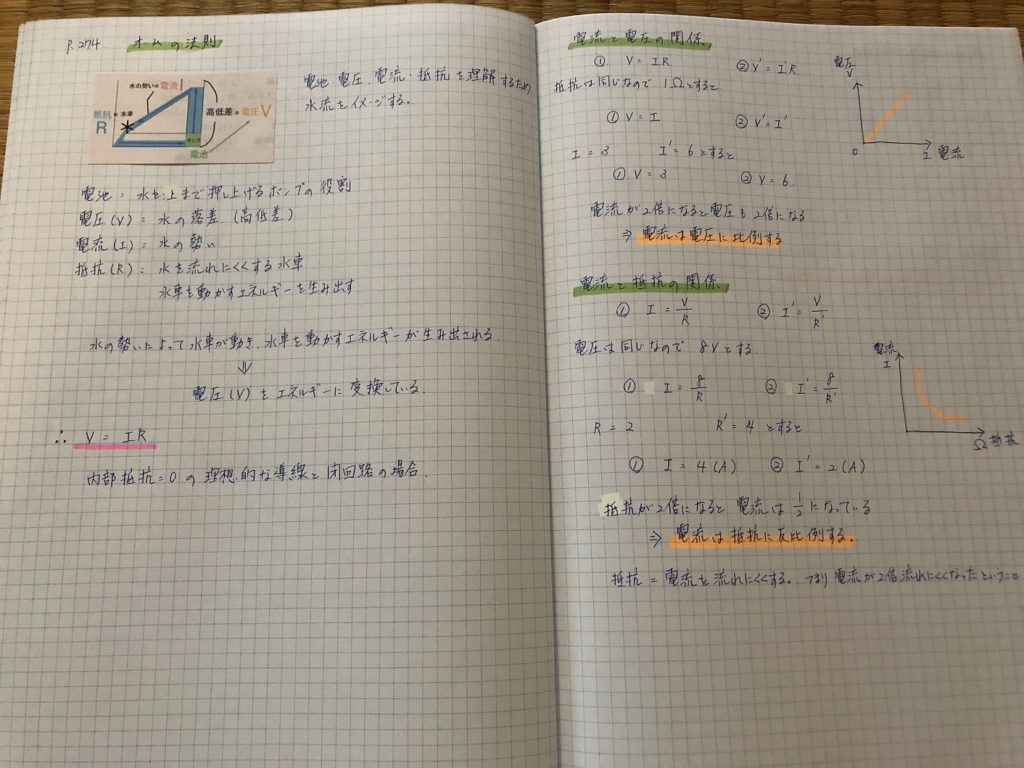 P.274 オームの法則
水の勢い=電流I
抵抗=水車
R
高低差=電圧V
ポンプ
電池
電池・電圧、電流・抵抗を理解するため
水流をイメージする。
電池 = 水を上まで押し上げるポンプの役割
電圧(V) = 水の落差 (高低差)
電流(I) = 水の勢い
抵抗(R) = 水を流れにくくする水車
水車を動かすエネルギーを生み出す
水の勢いによって水車が動き、水車を動かすエネルギーが生み出される
⇓
電圧(V)をエネルギーに変換している。
∴ V = IR
内部抵抗=0の理想的な導線と閉回路の場合。
電流と電圧の関係
① V = IR ② V' = I'R
抵抗は同じなので 1Ωとすると
① V = I ② V' = I'
I = 3 I' = 6 とすると
① V = 3 ② V = 6
電流が2倍になると電圧も2倍になる
⇒ 電流は電圧に比例する
電圧
V
0
I 電流
電流と抵抗の関係
① I = V/R ② I' = V/R'
電圧は同じなので 8Vとする。
① I = 8/R ② I' = 8/R'
R = 2 R' = 4 とすると
① I = 4 (A) ② I' = 2 (A)
抵抗が2倍になると 電流は 1/2 になっている
⇒ 電流は抵抗に反比例する。
電流
I
Ω 抵抗
抵抗 = 電流を流れにくくする。つまり電流が2倍流れにくくなったということ